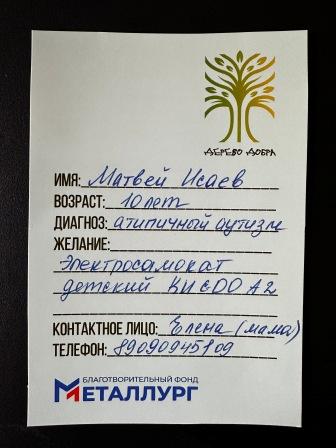 ДЕРЕВО ДОБРА
ИМЯ: Матвей Исаев
ВОЗРАСТ: 10 лет
ДИАГНОЗ: атипичный аутизм
ЖЕЛАНИЕ:
Электросамокат
детский KUGOO A2
КОНТАКТНОЕ ЛИЦО: Елена (мама)
ТЕЛЕФОН: 89090945109
БЛАГОТВОРИТЕЛЬНЫЙ ФОНД
МЕТАЛЛУРГ